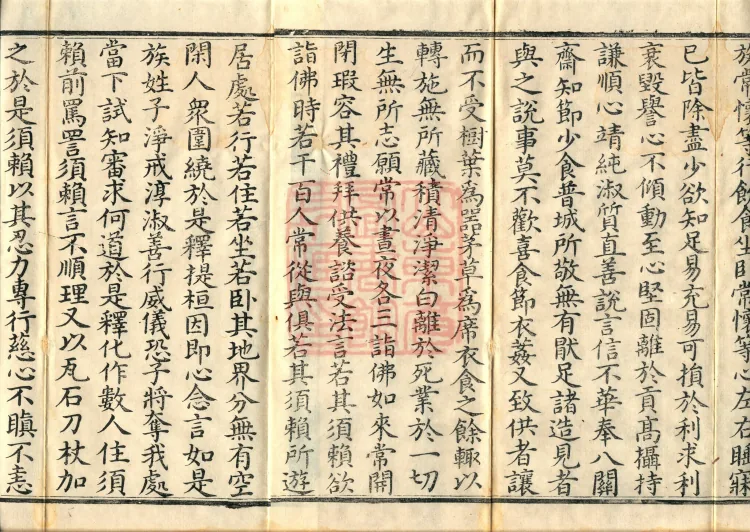 族常懷等行飲食坐臥常懷等心左右睡寐
已皆除盡少欲知足易充易可損於利求利
衰毀譽心不傾動至心堅固離於貢高攝持
謙順心靖純淑質直善說言信不華奉八關
齋知節少食普城所敬無有猒足諸造見者
與之說事莫不歡喜食節衣麤又致供者讓
而不受樹葉為器茅草為席衣食之餘輒以
轉施無所藏積清淨潔白離於死業於一切
生無所志願常以晝夜各三詣佛如來常開
閉瑕容其禮拜供養諮受法言若其須賴欲
詣佛時若干百人常從與俱若其須賴所遊
居處若行若住若坐若臥其地界分無有空
閑人眾圍繞於是釋提桓因即心念言如是
族姓子淨戒淳淑善行威儀恐子將奪我處
當下試知審求何道於是釋化作數人住須
賴前罵詈須賴言不順理又以瓦石刀杖加
之於是須賴以其忍力專行慈心不瞋不恚